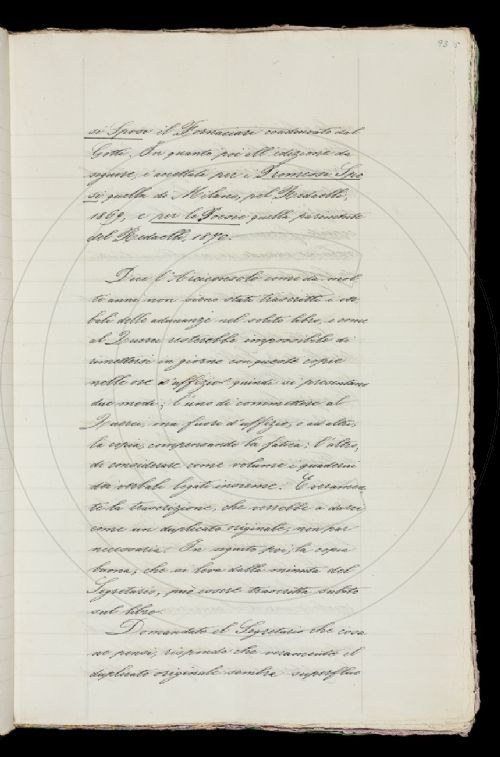 93
si Sposi il Fornaciari coadiuvato dal
Gotti. In quanto poi all'edizione da
seguire, è mettata per i Promessi Spo
si quella di Milano, pel Redaelli,
1869, e per le Poesie quella parimente
del Redaelli, 1870.
Dice l'Arciconsolo come da mol
ti anni non sieno stati trascritti i ver
bali delle adunanze nel solito libro, e come
al Querci resterebbe impossibile di
rimettersi in giorno con queste copie
nelle ore d'uffizio: quindi si presentano
due modi; l'uno di commettere al
Querci, ma fuori d'uffizio, o ad altri,
la copia, compensando la fatica; l'altro,
di considerare come volume i quaderni
dei verbali legati insieme. E veramen
te la trascrizione, che verrebbe a darci
come un duplicato originale, non par
necessaria. In seguito poi, la copia
buona, che si leva dalla minuta del
Segretario, può essere trascritta subito
sul libro.
Domandato il Segretario che cosa
ne pensi, risponde che veramente il
duplicato originale sembra superfluo